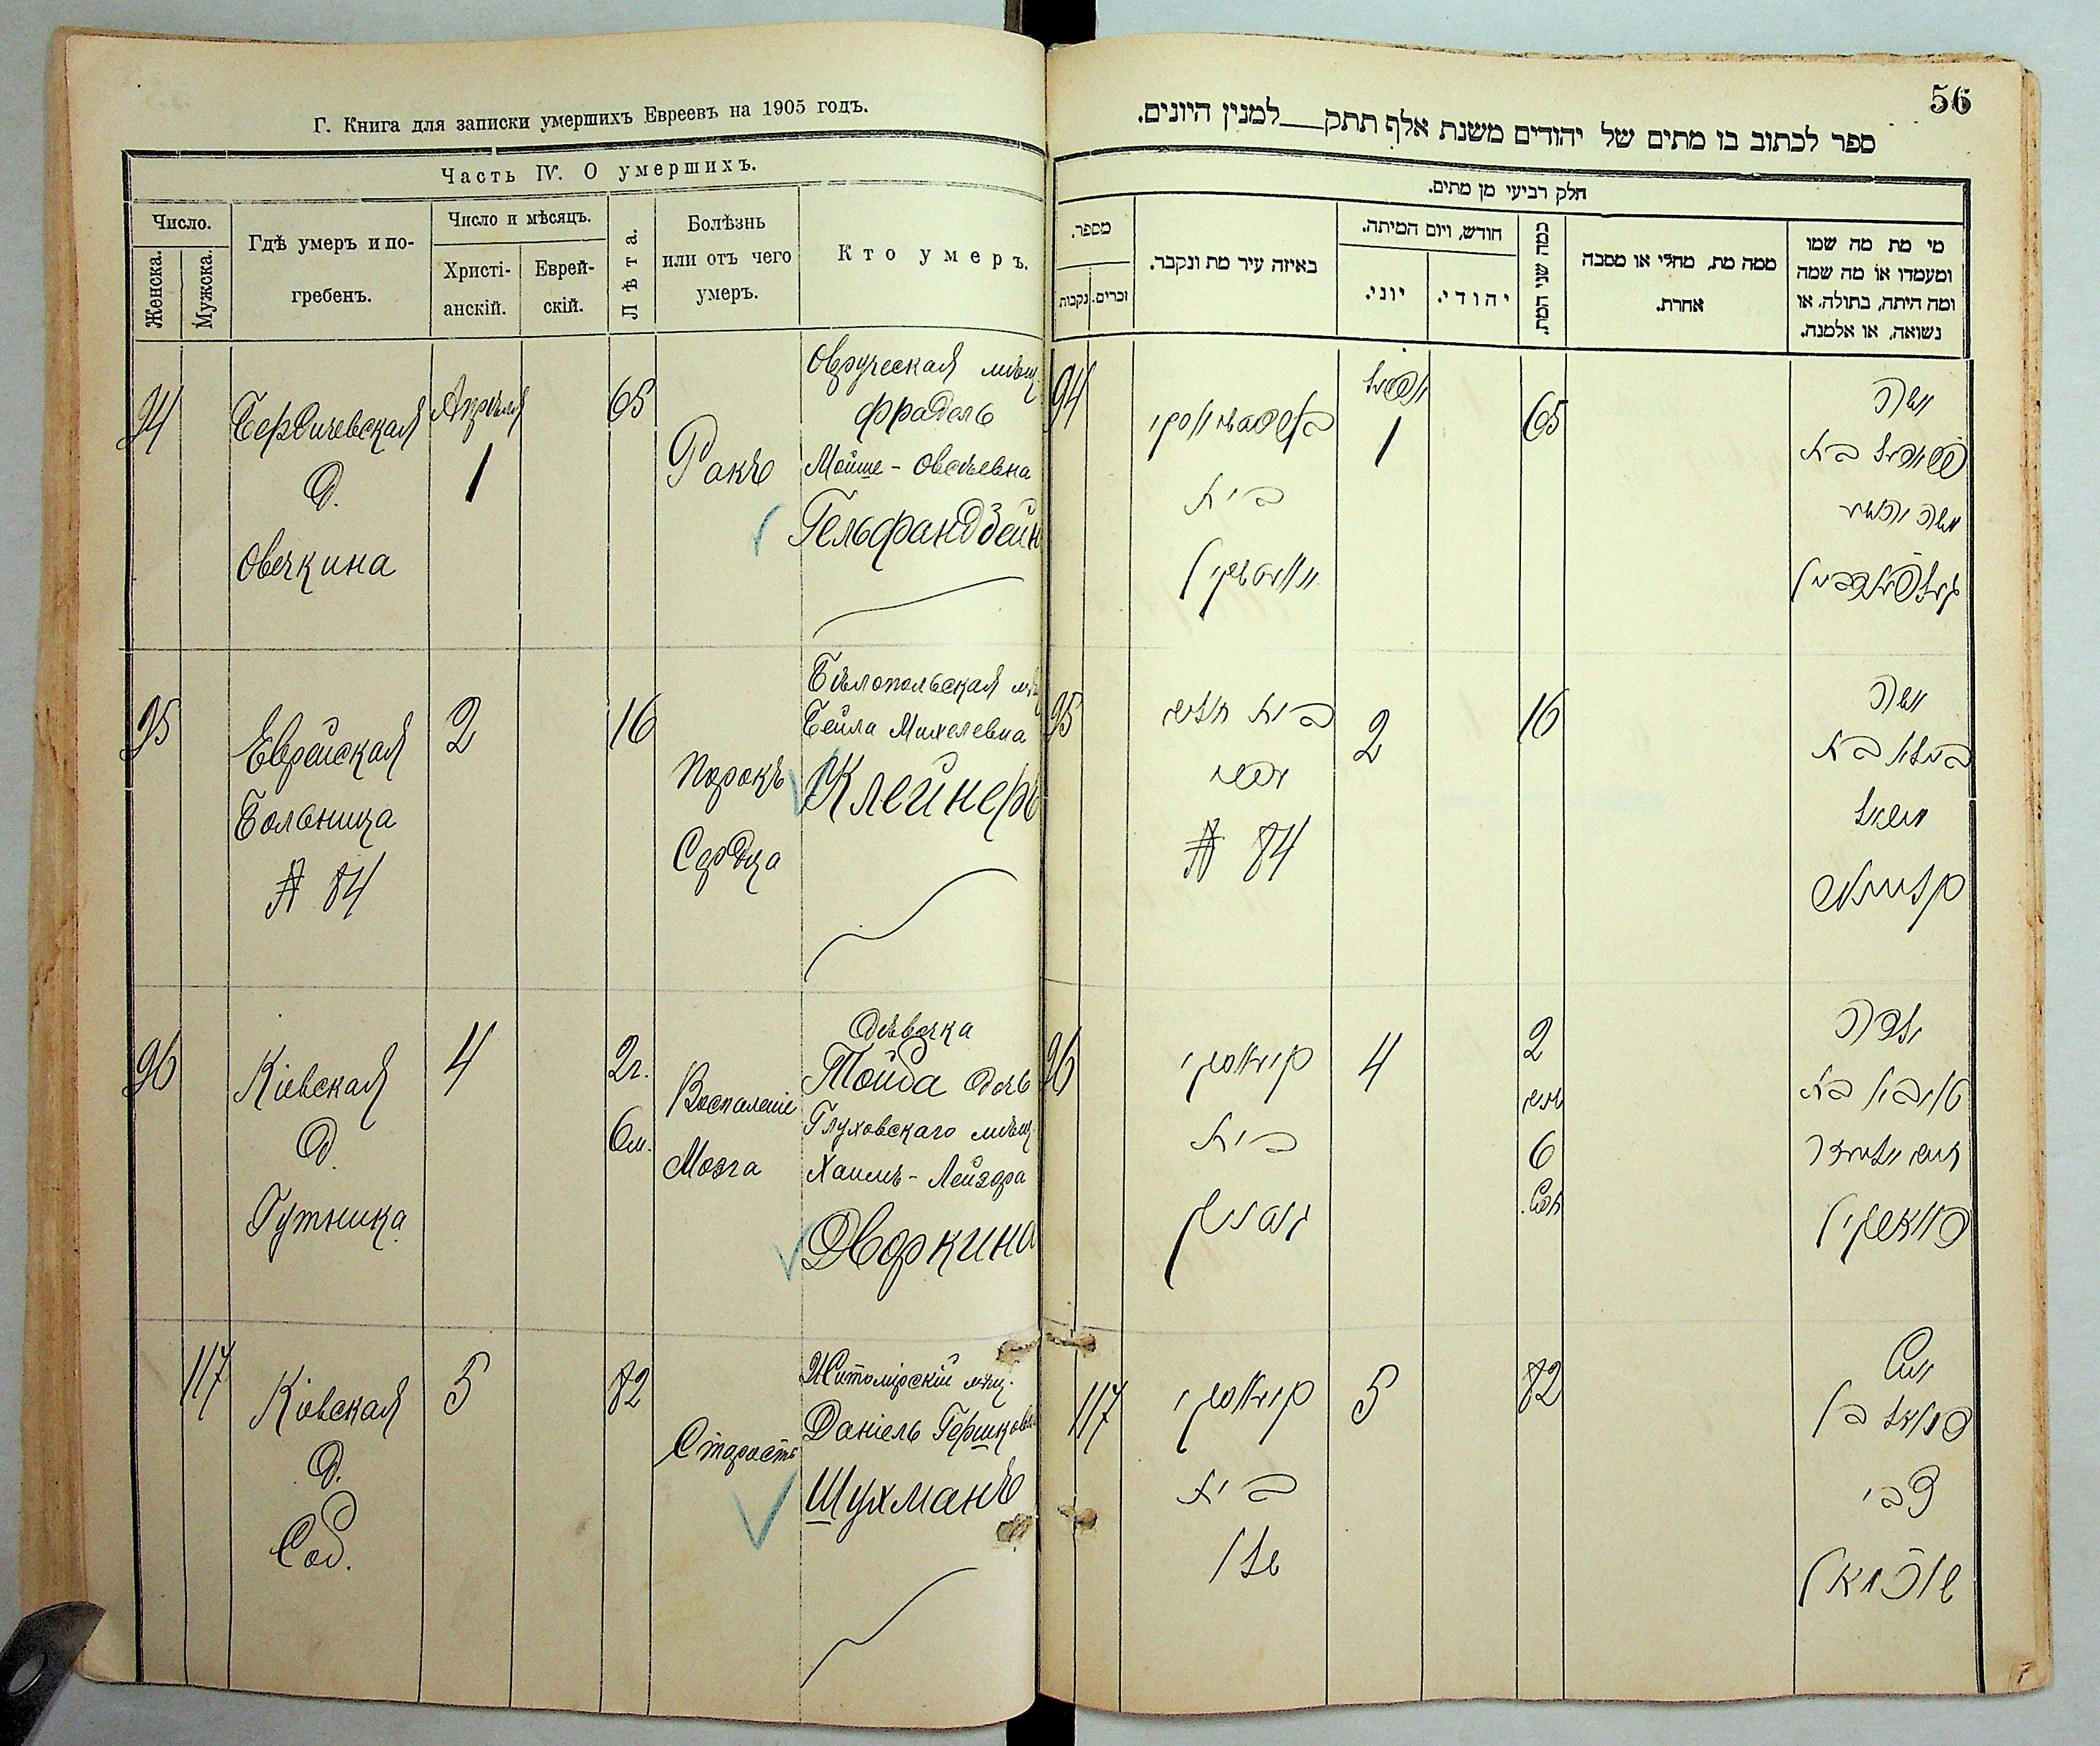 Г. Книга для записки умершихъ Евреевъ на 1905 годъ.
Часть IV. О умершихъ.
Число.
Женска.
Мужска.
Гдѣ умеръ и по-
гребенъ.
Число и мѣсяцъ.
Христі-
анскій.
Еврей-
скій.
Лѣта.
Болѣзнь
или отъ чего
умеръ.
Кто умеръ.
94
Бердичевская
д.
Овечкина
Апрѣля
1
65
Ракъ
Овручская мѣщ.
Фрадель
Мойше-Овсѣевна
Гельфандбейн
95
Еврейская
Больница
№ 84
2
16
Порокъ
Сердца
Бѣлопольская
Бейла Михелевна
Клейнеръ
96
Кіевская
д.
Гутника
4
2г.
6м.
Воспаленіе
Мозга
Дѣвочка
Тойба дочь
Глуховскаго мѣщ.
Хаимъ-Лейзера
Дворкина
117
Кіевская
д.
Соб.
5
82
Старость
Житомірскій мѣщ.
Даніель Гершков
Шухманъ
56
ספר לכתוב בו מתים של יהודים משנת אלף תתק__למנין היונים.
חלק רביעי מן מתים.
מספר.
נקבות
זכרים.
באיזה עיר מת ונקבר.
חודש, ויום המיתה.
יוני.
יהודי.
כמה שני המת.
ממה מת, מחלי או מסבה
אחרת.
מי מת מה שמו
ומעמדו או מה שמה
ומה היתה, בתולה, או
נשואה, או אלמנה.
94
בית
1
65
אשה
בת
95
בית חולים
№ 84
2
16
אשה
ביילא בת
מיכאל
96
בית
4
2
שנים
6
חדש.
ילדה
טויבא בת
דווארקין
117
בית
שלו
5
82
איש
דניאל בן
צבי
שוכמאן